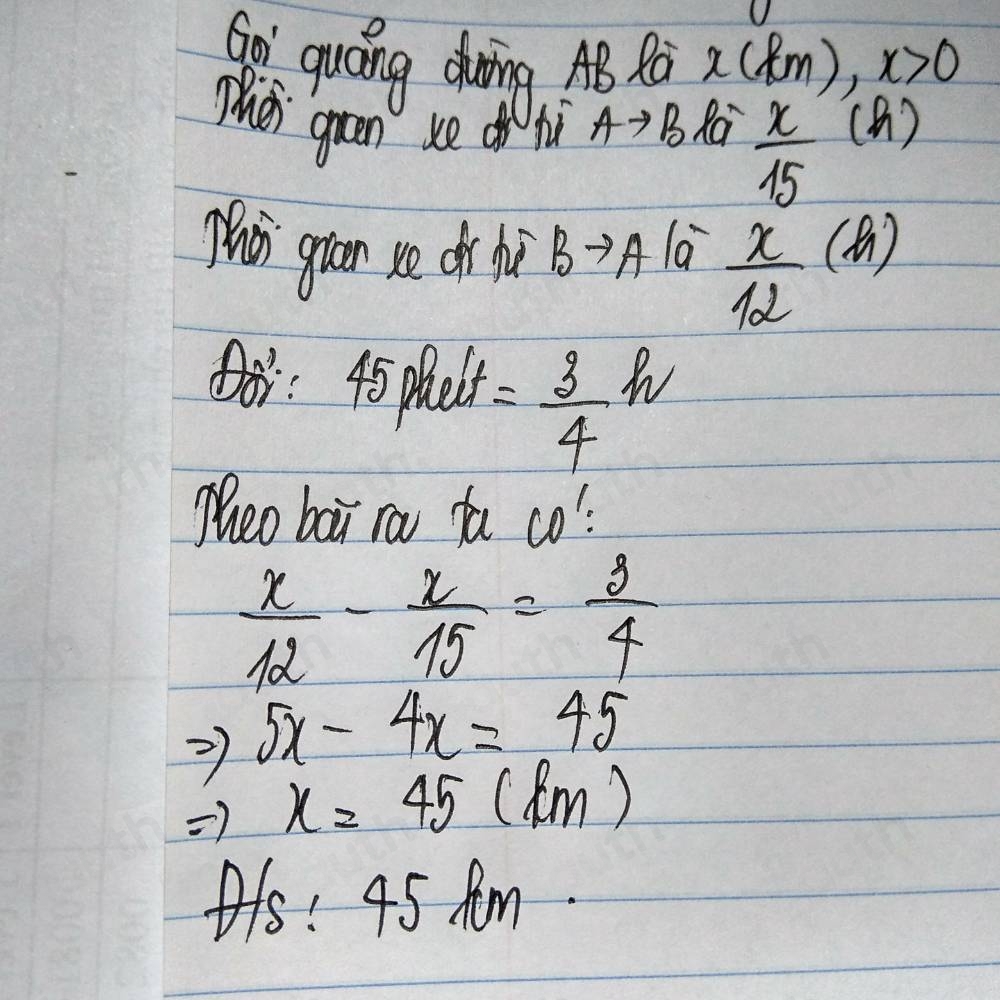 Gọi quãng đường AB là x (km), x>0
Thời gian xe đi từ A→B là x/15 (h)
Thời gian xe đi từ B→A là x/12 (h)
Đổi: 45 phút = 3/4 h
Theo bài ra ta có:
x/12 - x/15 = 3/4
=> 5x - 4x = 45
=> x = 45 (km)
Đ/s: 45 km.